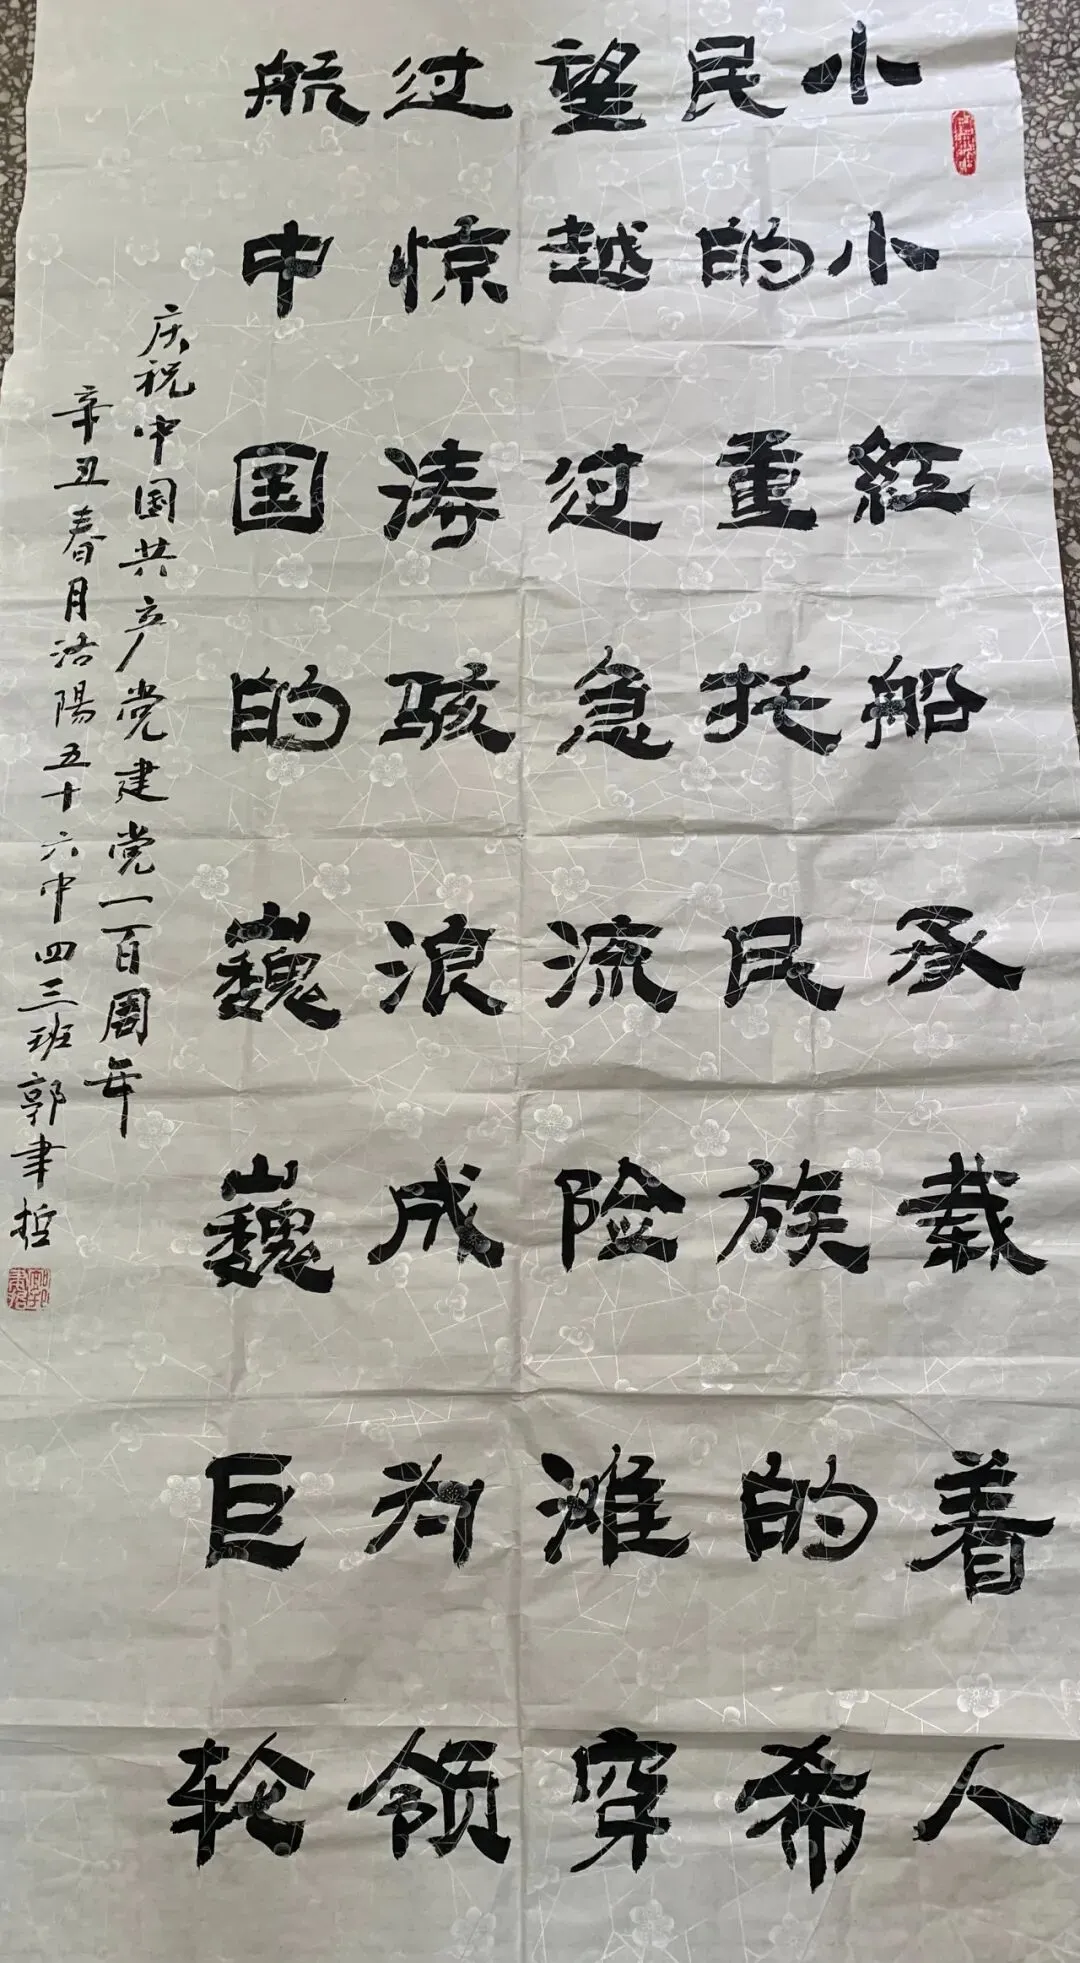 小小紅船承载着人
民的重托民族的希
望越过急流险滩穿
过惊涛骇浪成为领
航中国的巍巍巨轮
庆祝中国共产党建党一百周年
辛丑春月洛陽五十六中四三班郭聿哲